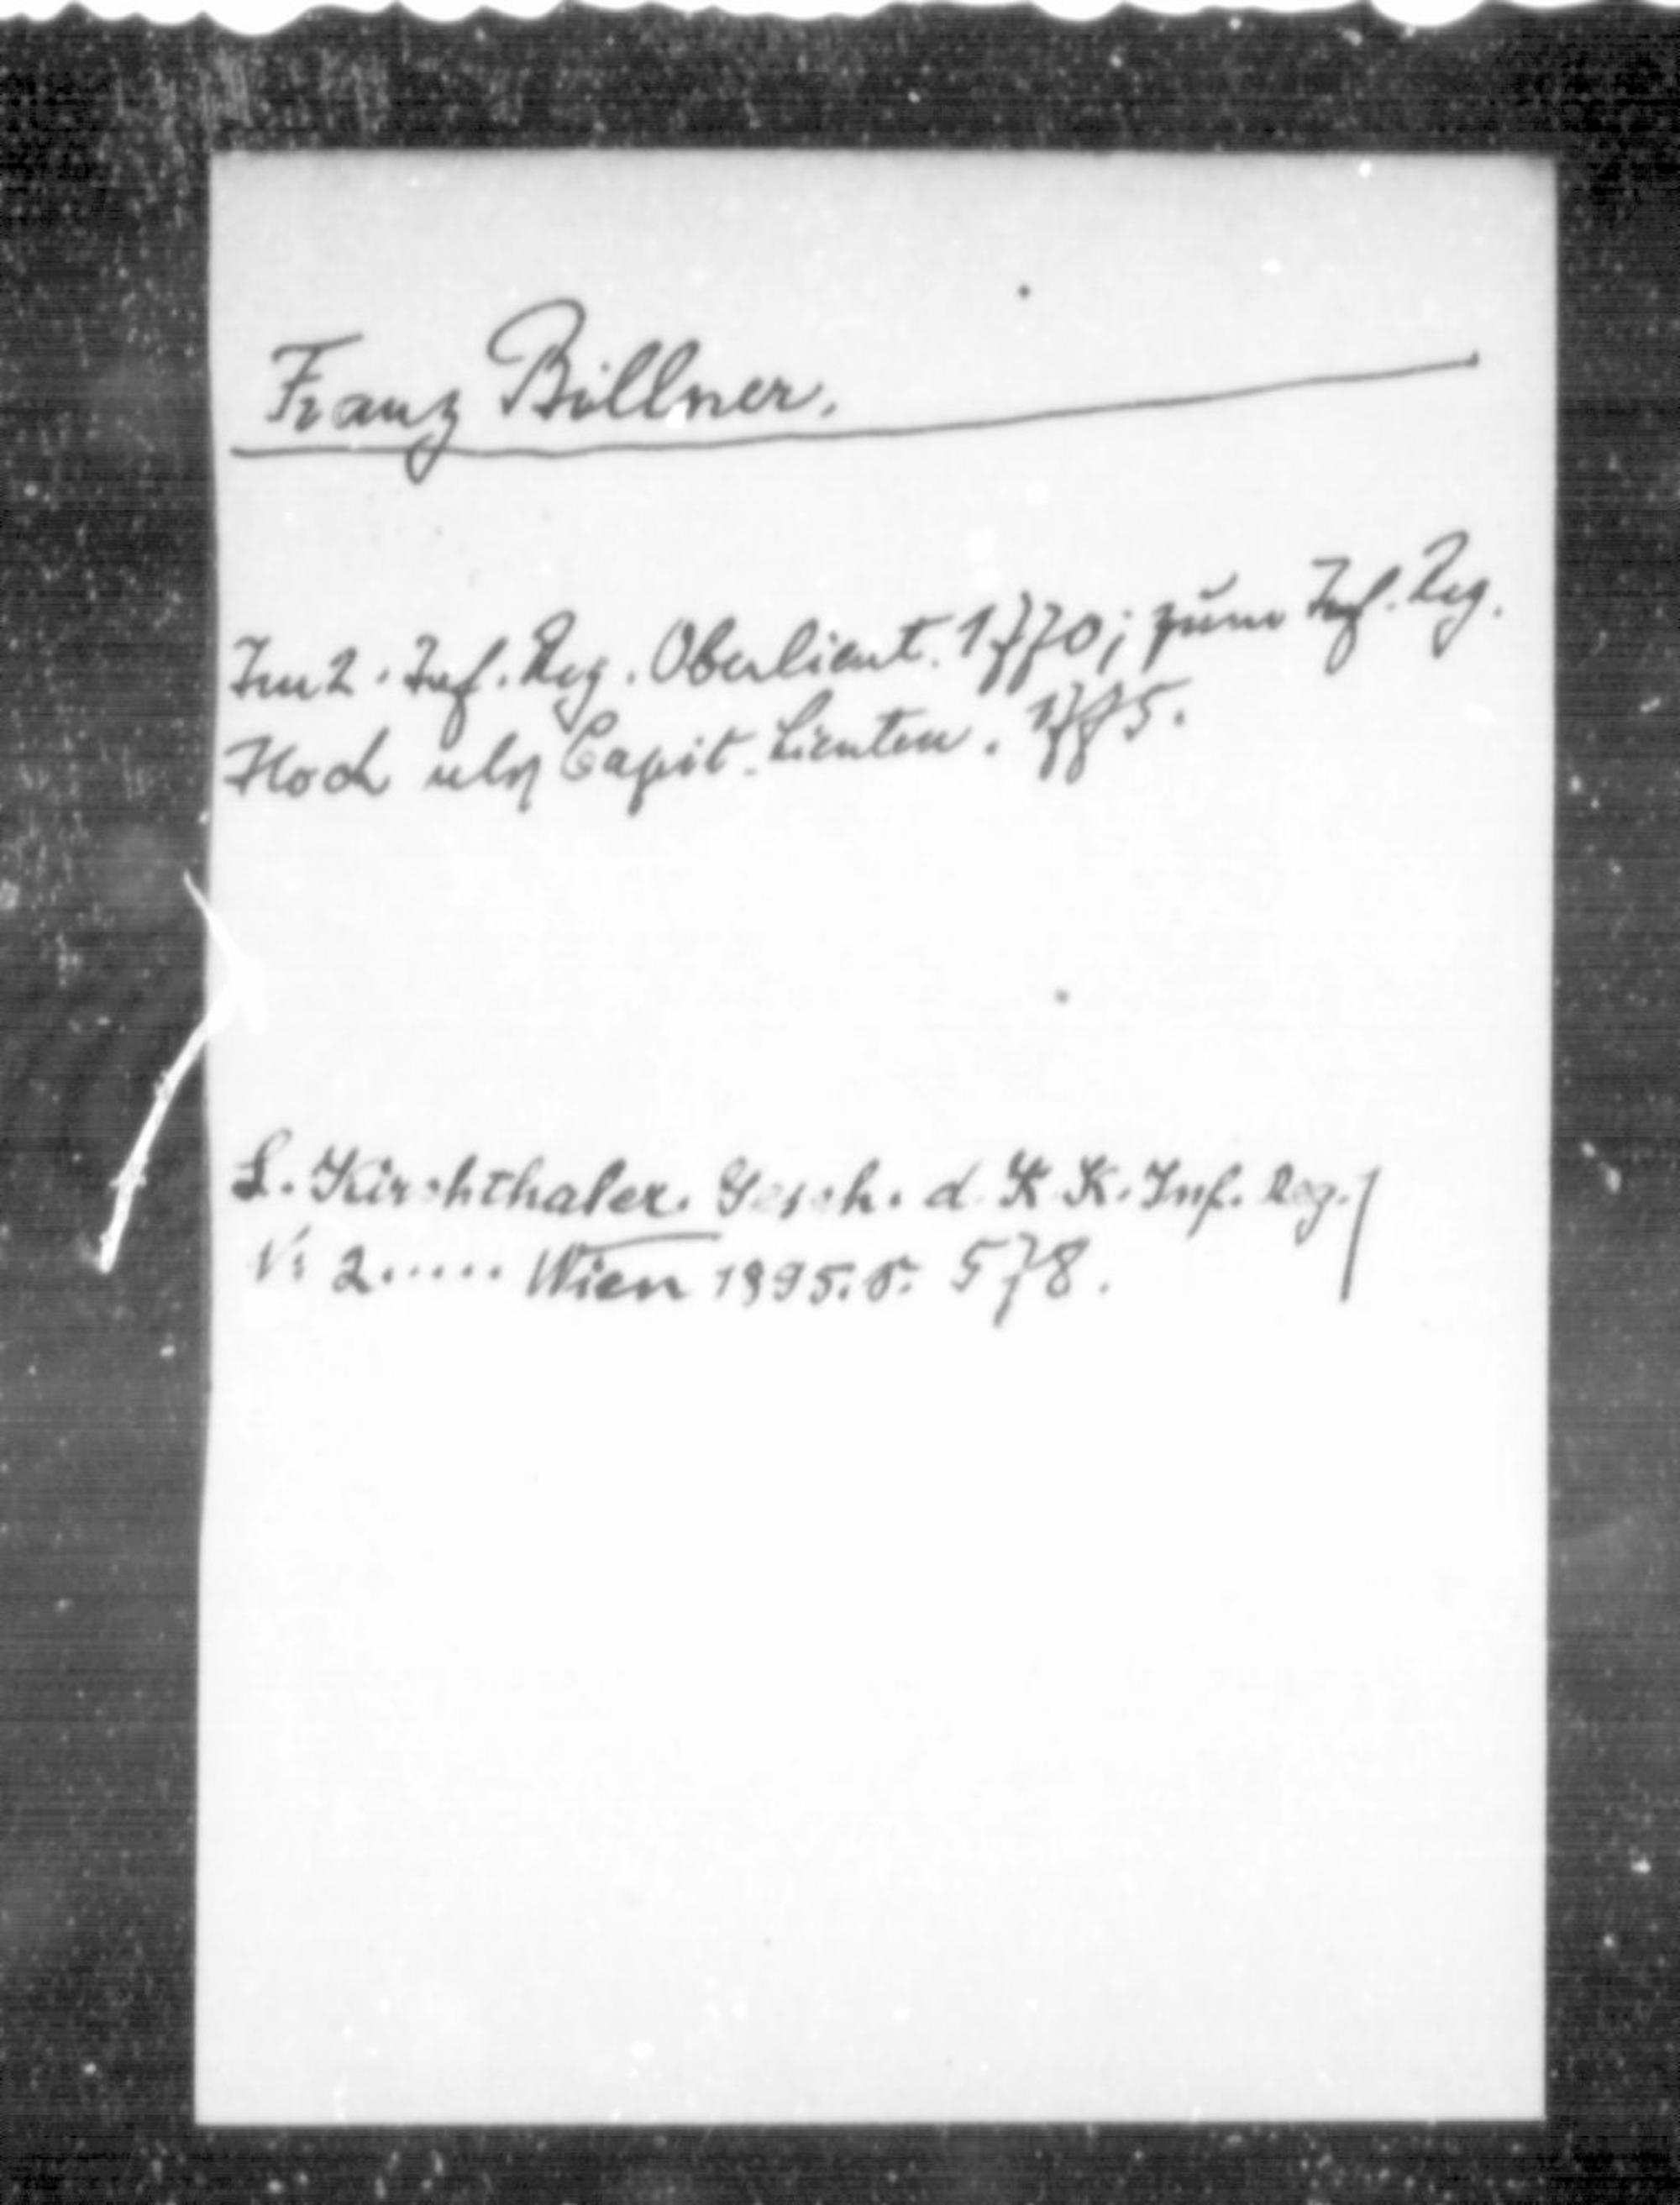 Franz Billner.
Im 2. Inf. Reg. Oberlieut. 1770; zum Inf. Reg.
als Capit. Lieuten. 1775.
L. Kirchthaler. Gesch. d. K. K. Inf. Reg.
Nr 2..... Wien 1895. S. 578.